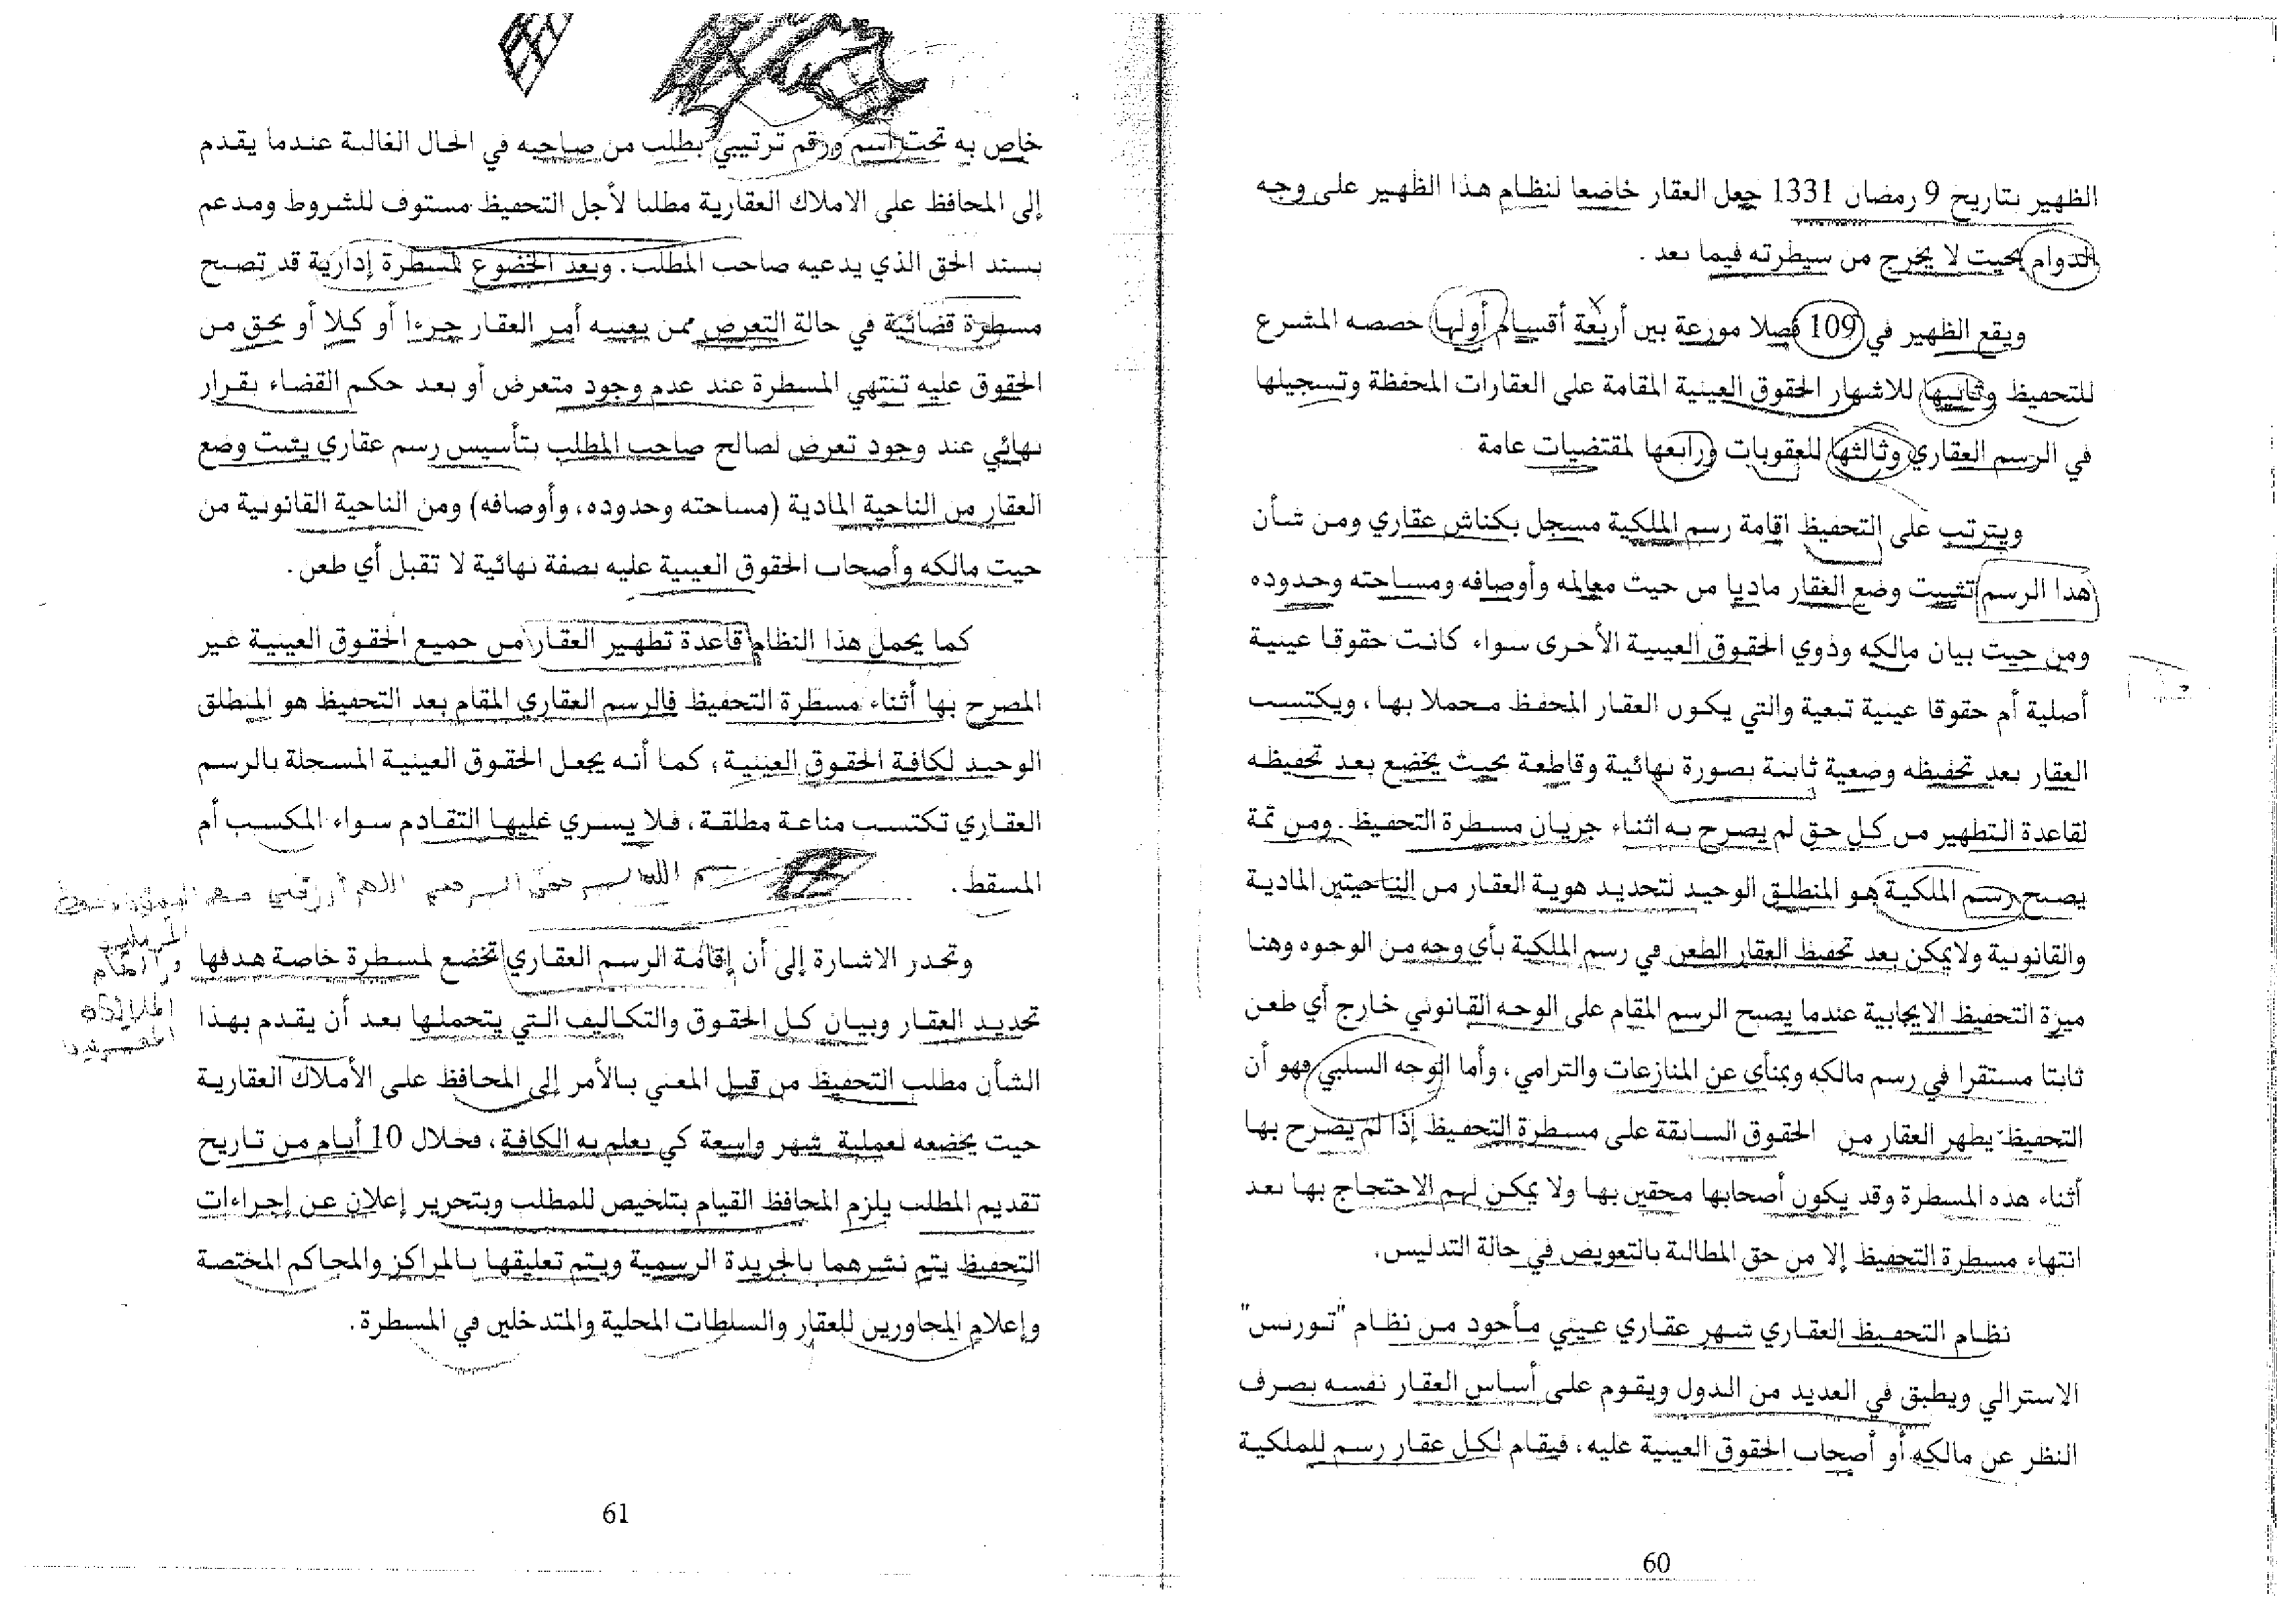 الظهير بتاريخ 9 رمضان 1331 جعل العقار خاضعا لنظام هذا الظهير على وجه
الدوام بحيت لا يخرج من سيطرته فيما بعد .
ويقع الظهير في 109 فصلا موزعة بين أربعة أقسام أولها خصصه المشرع
للتحفيظ وثانيها للاشهار الحقوق العينية المقامة على العقارات المحفظة وتسجيلها
في الرسم العقاري وثالثها للعقوبات ورابعها لمقتضيات عامة
ويترتب على التحفيظ اقامة رسم الملكية مسجل بكناش عقاري ومن شأن
هدا الرسم تثبيت وضع العقار ماديا من حيث معالمه وأوصافه ومساحته وحدوده
ومن حيت بيان مالكه وذوي الحقوق العينية الأخرى سواء كانت حقوقا عينية
أصلية أم حقوقا عينية تبعية والتي يكون العقار المحفظ محملا بها، ويكتسب
العقار بعد تحفيظه وضعية ثابتة بصورة نهائية وقاطعة بحيث يخضع بعد تحفيظه
لقاعدة التطهير من كل حق لم يصرح به اثناء جريان مسطرة التحفيظ. ومن تمة
يصبح رسم الملكية هو المنطلق الوحيد لتحديد هوية العقار من الناحيتين المادية
والقانونية ولايمكن بعد تحفيظ العقار الطعن في رسم الملكية بأي وجه من الوجوه وهنا
ميزة التحفيظ الايجابية عندما يصبح الرسم المقام على الوجه القانوني خارج أي طعن
ثابتا مستقرا في رسم مالكه وبمنأى عن المنازعات والترامي، وأما الوجه السلبي فهو أن
التحفيظ يطهر العقار من الحقوق السابقة على مسطرة التحفيظ إذا لم يصرح بها
أثناء هده المسطرة وقد يكون أصحابها محقين بها ولا يمكن لهم الاحتجاج بها بعد
انتهاء مسطرة التحفيظ إلا من حق المطالبة بالتعويض في حالة التدليس.
نظام التحفيظ العقاري شهر عقاري عيني مأخود من نظام "تورنس"
الاسترالي ويطبق في العديد من الدول ويقوم على أساس العقار نفسه بصرف
النظر عن مالكه أو أصحاب الحقوق العينية عليه، فيقام لكل عقار رسم للملكية
60
خاص به تحت اسم ورقم ترتيبي بطلب من صاحبه في الحال الغالبة عندما يقدم
إلى المحافظ على الاملاك العقارية مطلبا لأجل التحفيظ مستوف للشروط ومدعم
بسند الحق الذي يدعيه صاحب المطلب. وبعد الخضوع لمسطرة إدارية قد تصبح
مسطرة قضائية في حالة التعرض ممن يعنيه أمر العقار جزءا أو كلا أو بحق من
الحقوق عليه تنتهي المسطرة عند عدم وجود متعرض أو بعد حكم القضاء بقرار
نهائي عند وجود تعرض لصالح صاحب المطلب بتأسيس رسم عقاري يثبت وضع
العقار من الناحية المادية (مساحته وحدوده، وأوصافه) ومن الناحية القانونية من
حيت مالكه وأصحاب الحقوق العينية عليه بصفة نهائية لا تقبل أي طعن.
كما يحمل هذا النظام قاعدة تطهير العقار من جميع الحقوق العينية غير
المصرح بها أثناء مسطرة التحفيظ فالرسم العقاري المقام بعد التحفيظ هو المنطلق
الوحيد لكافة الحقوق العينية، كما أنه يجعل الحقوق العينية المسجلة بالرسم
العقاري تكتسب مناعة مطلقة، فلا يسري عليها التقادم سواء المكسب أم
المسقط.
بسم الله الرحمن الرحيم اللهم أرزقني
وتجدر الاشارة إلى أن إقامة الرسم العقاري تخضع لمسطرة خاصة هدفها
تحديد العقار وبيان كل الحقوق والتكاليف التي يتحملها بعد أن يقدم بهذا
الشأن مطلب التحفيظ من قبل المعني بالأمر إلى المحافظ على الأملاك العقارية
حيت يخضعه لعملية شهر واسعة كي يعلم به الكافة، فخلال 10 أيام من تاريخ
تقديم المطلب يلزم المحافظ القيام بتلخيص للمطلب وبتحرير إعلان عن إجراءات
التحفيظ يتم نشرهما بالجريدة الرسمية ويتم تعليقها بالمراكز والمحاكم المختصة
وإعلام المجاورين للعقار والسلطات المحلية والمتدخلين في المسطرة.
61